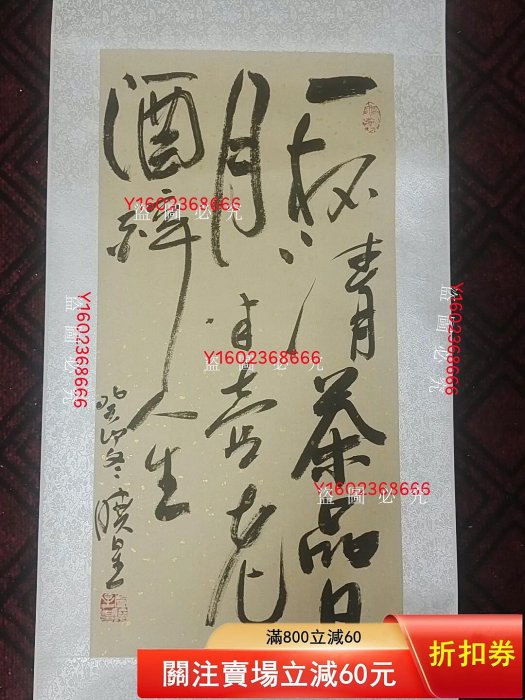 一杯清茶品日
月半壶老
酒醉人生
癸卯冬
Y1602368666
盗圖必究
Y1602368666
盗圖必究
Y1602368666
盗圖必究
Y1602368666
盗圖必究
Y1602368666
盗圖必究
滿800立減60
關注賣場立減60元
折扣券